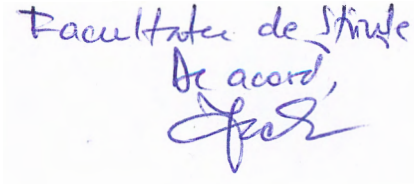 Facultatea de Științe
De acord,